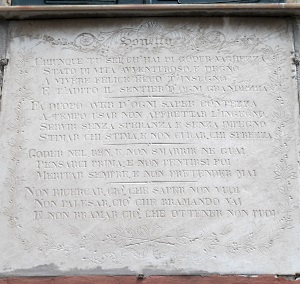 Sonetto
CHIUNQUE TU SEI, CH'HAI DI GODER VAGHEZZA
STATO DI VITA AVVENTUROSO E DEGNO
A VIVERE FELICE ECCO T'INSEGNO
E T'ADDITO IL SENTIER D'OGNI GRANDEZZA
FA DUOPO AVER D'OGNI SAPER CONTEZZA
A TEMPO USAR NON APPETTAR L'INGEGNO
SERVIR SENZA SPERANZA E SENZA IMPEGNO
STIMAR CHI STIMA E NON CURAR, CHI SPREZZA
GODER NEL BEN E NON SMARRIR NE GUAI
PENSARCI PRIMA, E NON PENTIRSI POI
MEDITAR SEMPRE E NON PRETENDER MAI
NON RICERCAR, CIO', CHE SAPER NON VUOI
NON PALESAR, CIO' CHE BRAMANDO VAI
E NON BRAMAR CIO', CHE OTTENER NON PUOI